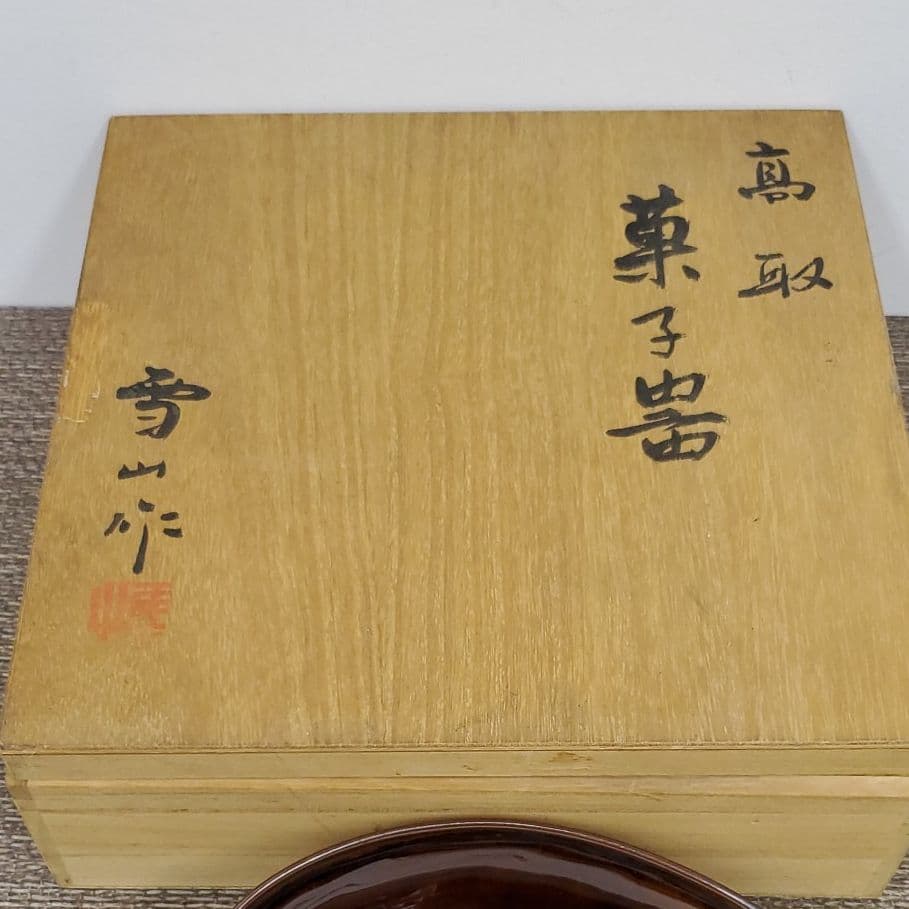 高取
菓子器
雪山作